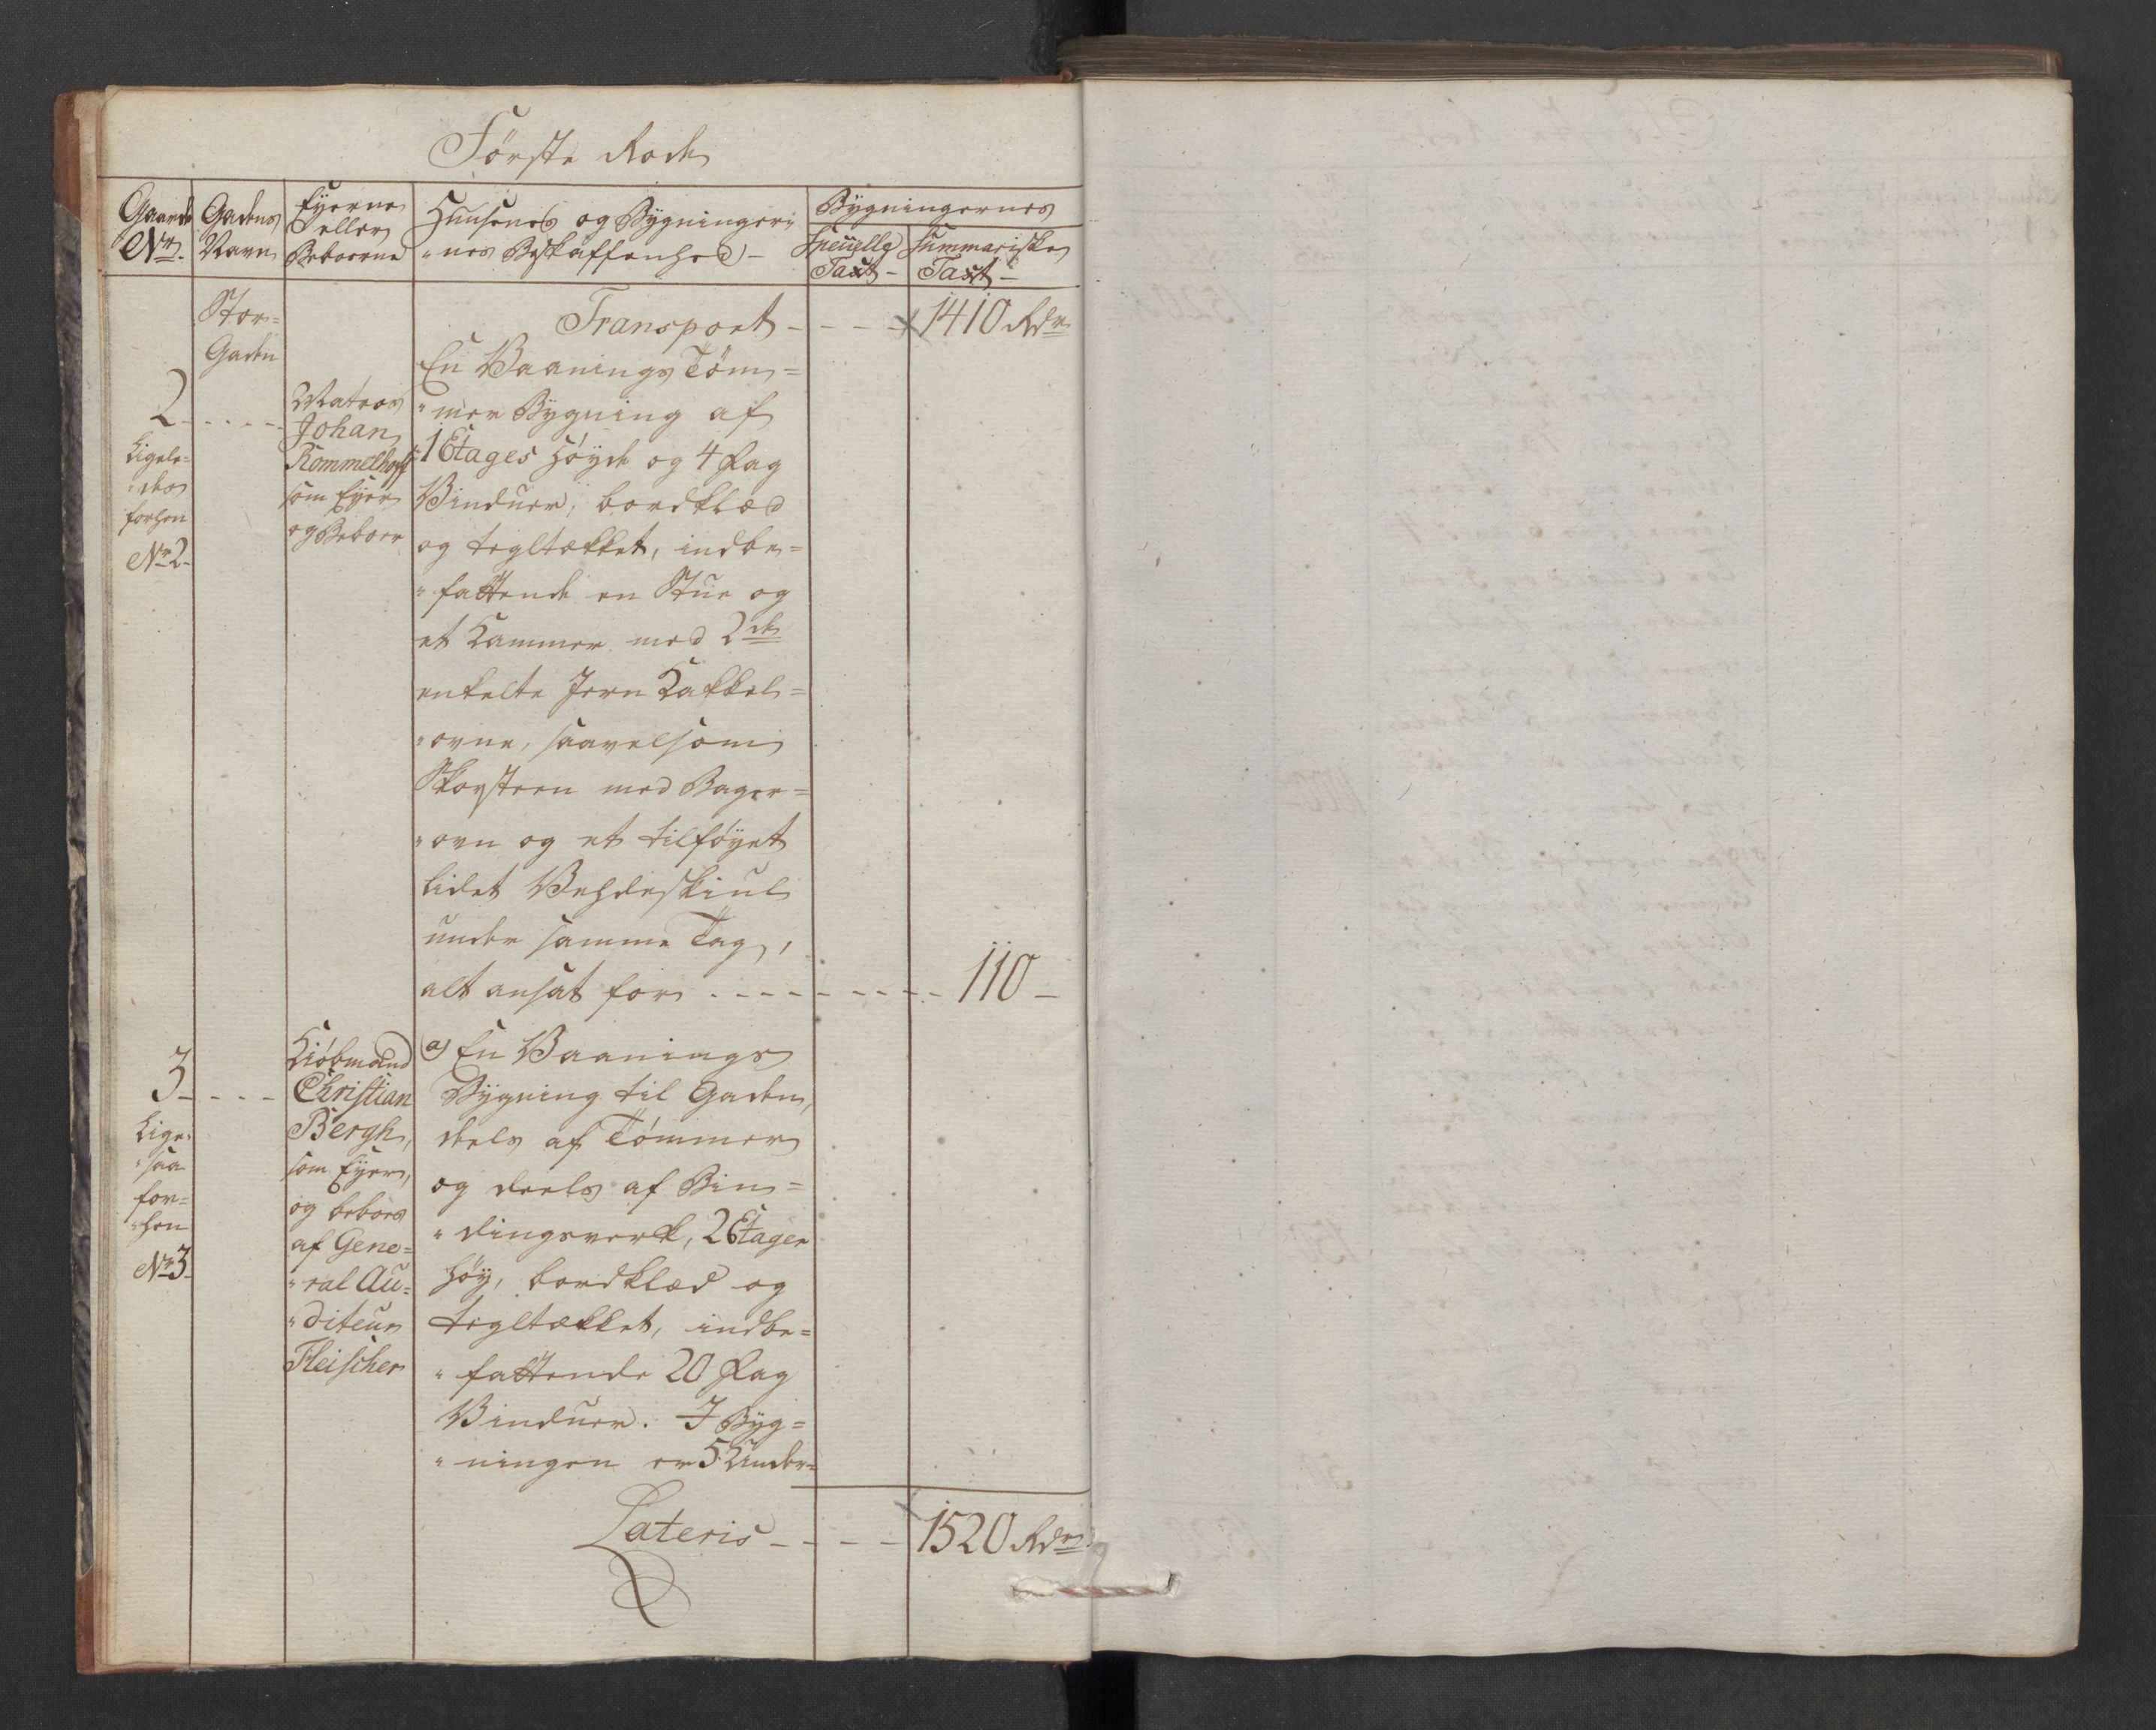 Første Rode
Gaards Nr.
Gadens Navn
Eyerne eller Beboerne
Huusenes og Bygninger-
nes Beskaffenhed -
Bygningernes
Specielle Taxt -
Summariske Taxt -
Stor=
Gaden
Transport - - - - 1410 Rdr
2 - - - -
Ligele=
des
forhen
Nr 2
Matros
Johan
Rommelhoff
som Eyer
og Beboer
En Vaanings Tøm=
mer Bygning af
1 Etages Høyde og 4 Fag
Vinduer, bordklæd
og tegltækket, indbe=
fattende en Stue og
et Kammer med 2de
enkelte Jern Kakkel=
ovne, saavelsom
Skorsteen med Bager=
ovn og et tilføyet
lidet Vehdeskiul
under samme Tag,
alt ansat for - - - - - - - - 110 -
3 - - - -
Lige=
saa
for=
hen
Nr 3
Kiøbmand
Christian
Bergh,
som Eyer,
og beboes
af Gene=
ral Au=
diteur
Fleischer
a) En Vaanings
Bygning til Gaden,
deels af Tømmer
og deels af Bin=
dingsverk, 2 Etager
høy, bordklæd og
tegltækket, indbe=
fattende 20 Fag
Vinduer. I Byg=
ningen er 5 Under=
Lateris - - - - 1520 Rdr